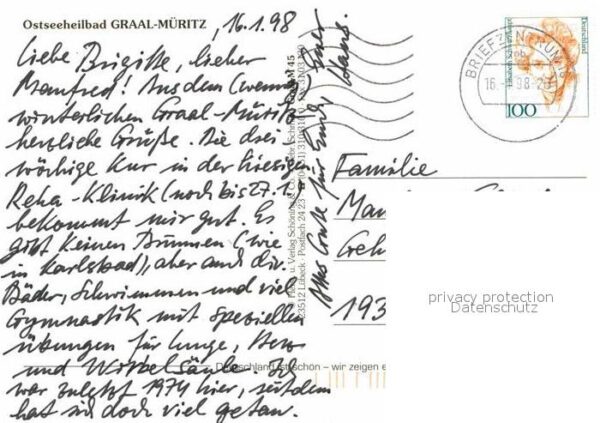 Ostseeheilbad GRAAL-MÜRITZ
16.1.98
Liebe Brigitte, lieber
Manfred! Aus dem (wenn
winterlichen Graal-Müritz
herzliche Grüße. Die drei
wöchige Kur in der hiesigen
Reha-Klinik (noch bis 27.1.
bekommt mir gut. Es
gibt keinen Brunnen (wie
in Karlsbad), aber auch div.
Bäder, Schwimmen und viel
Gymnastik mit speziellen
Übungen für Lunge, Herz
und Wirbelsäule. Ich
war zuletzt 1974 hier, seitdem
hat sich doch viel getan.
Alles Gute für Euch
Euer
Hans.
Verlag Schöning
23512 Lübeck · Postfach 24 23
Deutschland ist schön – wir zeigen e
BRIEFZENTRUM 18
16. 98-2
Deutschland
100
Familie
Man
Geh
193
privacy protection
Datenschutz